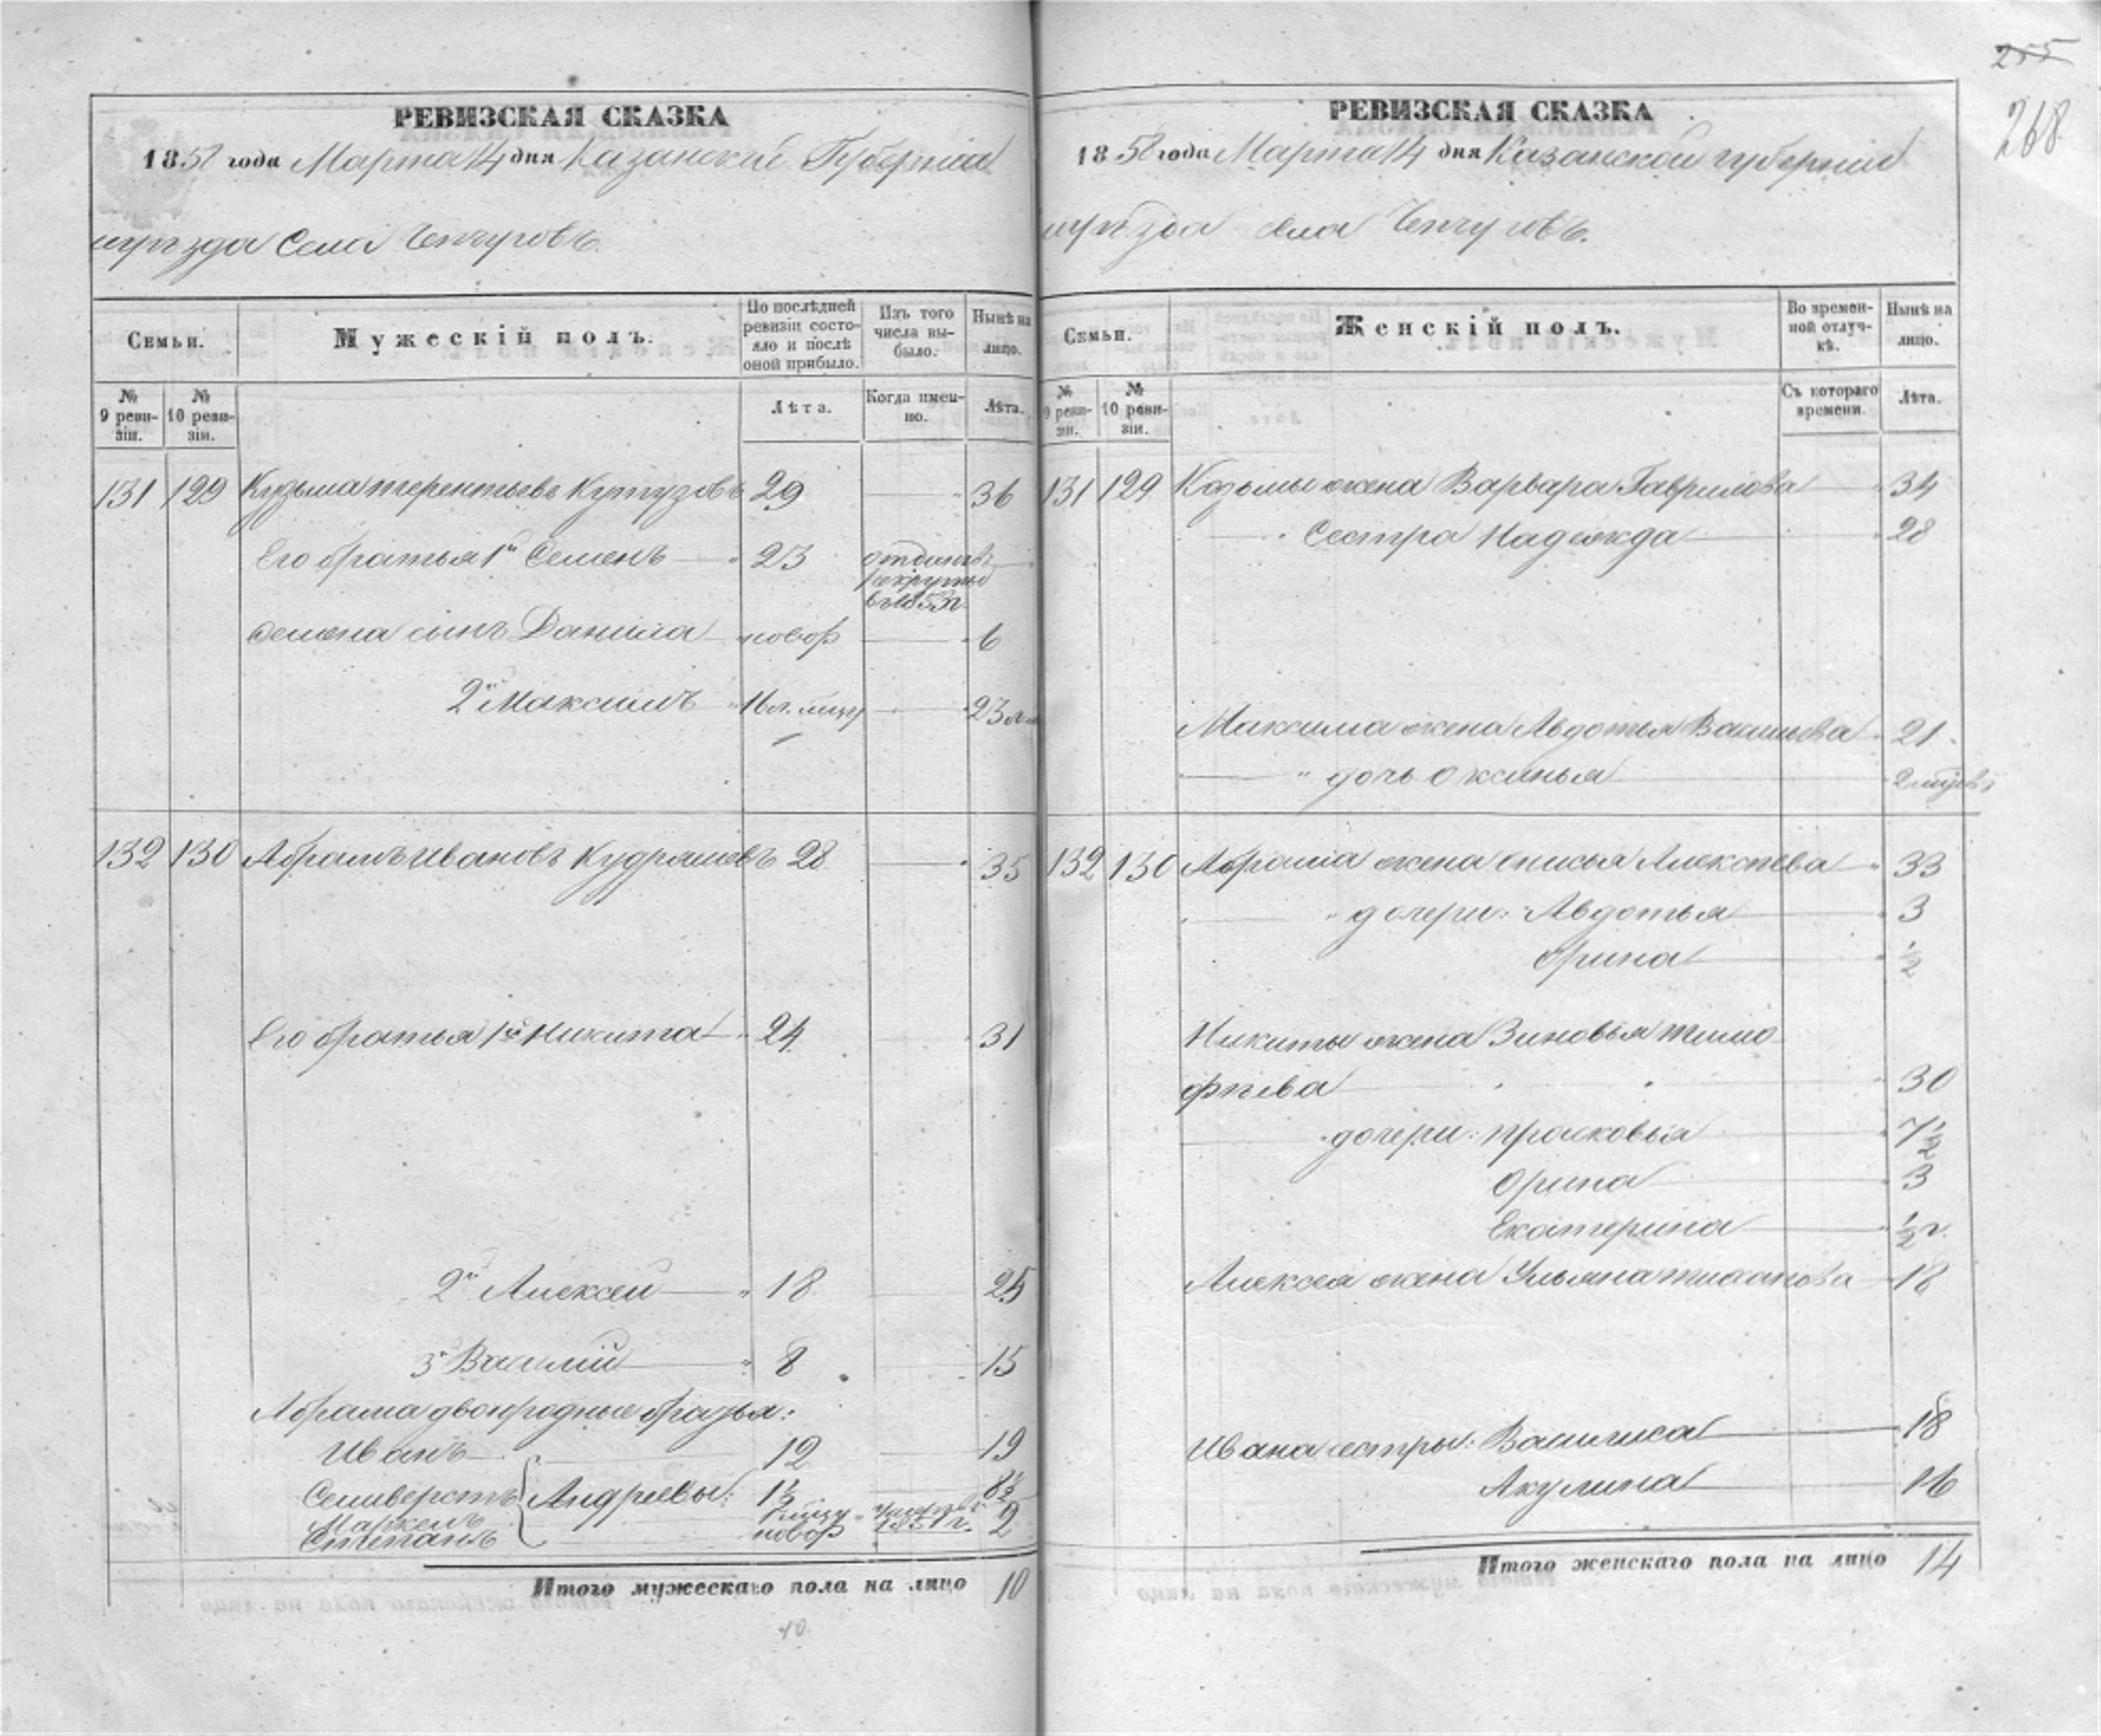 255
268
РЕВИЗСКАЯ СКАЗКА
1858 года Марта 14 дня Казанской Губерніи
уѣзда Села
Семьи.
Мужескій полъ.
По послѣдней ревизіи состояло и послѣ оной прибыло.
Изъ того числа выбыло.
Нынѣ на лицо.
№ 9 ревизіи.
№ 10 ревизіи.
Лѣта.
Когда именно.
Лѣта.
131 129 Кузьма терентьевъ Кутузовъ 29 36
Его братья 1й Семенъ 23 отданъ въ рекруты въ 1853 г.
Семена сынъ Данила новор 6
2й Максимъ 16 л. 23
132 130 Абрамъ Ивановъ Кудряшевъ 28 35
Его братья 1й Никита 24 31
2й Алексей 18 25
3й Василій 8 15
Абрама двоюродные братья:
Иванъ 12 19
Селиверстъ Андреевы: 1½ 8½
Маркелъ
Степанъ новор 2
Итого мужескаго пола на лицо 10
10
РЕВИЗСКАЯ СКАЗКА
1858 года Марта 14 дня Казанской губерніи
уѣзда села
Семьи.
Женскій полъ.
Во временной отлучкѣ.
Нынѣ на лицо.
№ 9 ревизіи.
№ 10 ревизіи.
Съ котораго времени.
Лѣта.
131 129 Козьмы жена Варвара Гаврилова 34
Сестра Надежда 28
Максима жена Авдотья Васильева 21
дочь Оксинья
132 130 Абрама жена Алексѣева 33
дочери: Авдотья 3
Орина ½
Никиты жена Зиновья тимо
фѣева 30
дочери: Прасковья 7½
Орина 3
Екатерина ½ г.
Алексея жена Ульяна 18
Ивана сестры: Василиса 18
Акулина 16
Итого женскаго пола на лицо 14